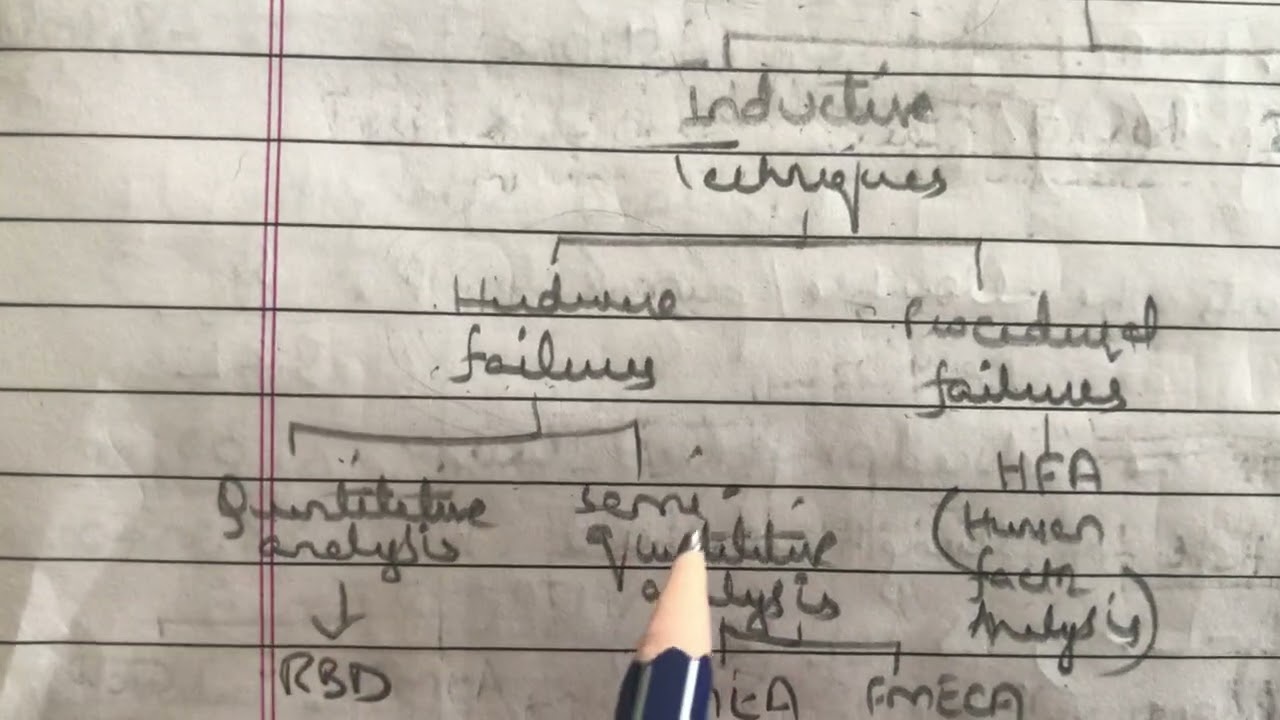 Inductive
Techniques
Hardware
failures
Procedural
failures
Quantitative
analysis
Semi
quantitative
analysis
HFA
(Human
factor
Analysis)
RBD
FMECA